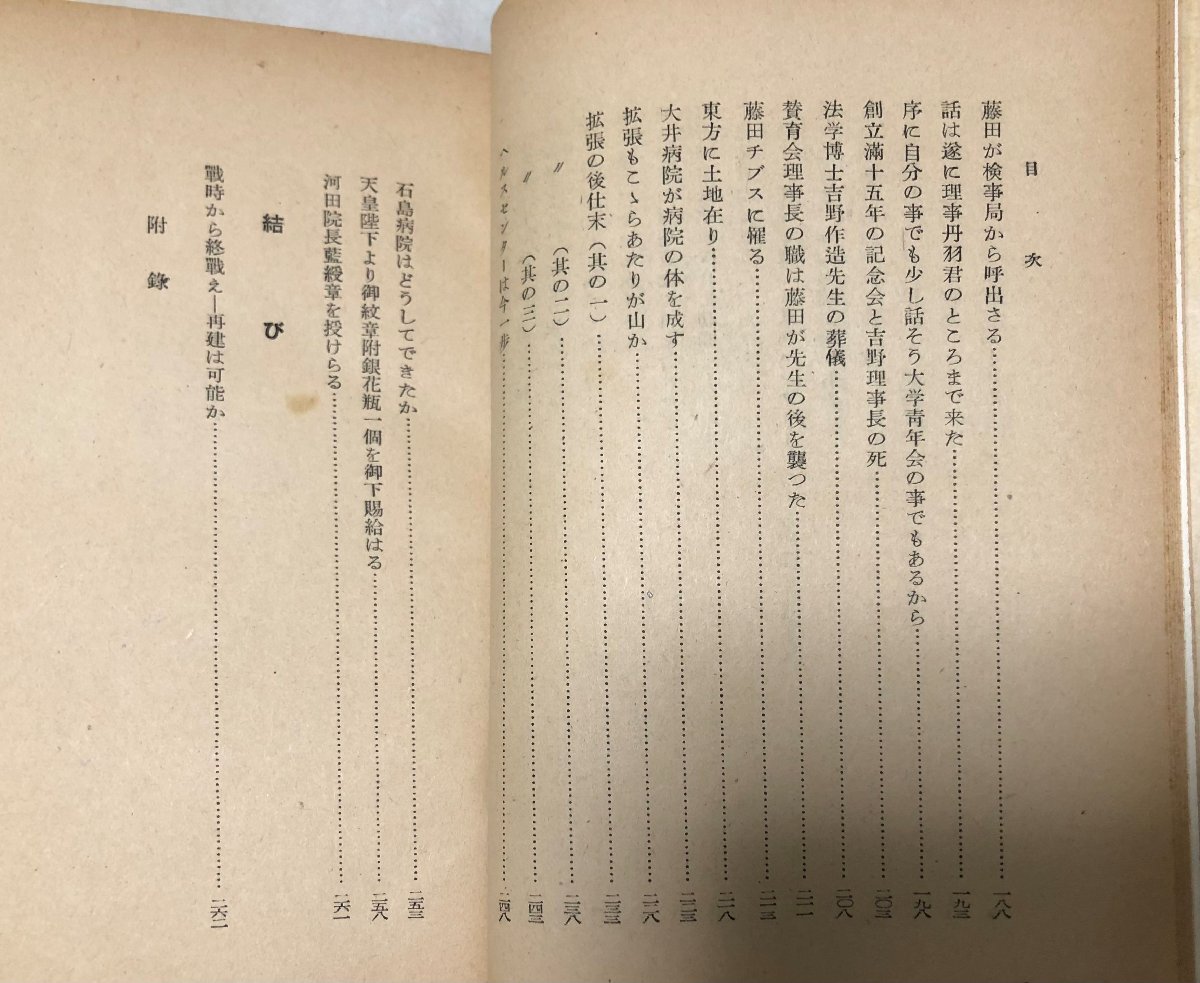 目次
藤田が検事局から呼出さる……一八八
話は遂に理事丹羽君のところまで来た……一九三
序に自分の事でも少し話そう大学青年会の事でもあるから……一九八
創立滿十五年の記念会と吉野理事長の死……二〇三
法学博士吉野作造先生の葬儀……二〇八
賛育会理事長の職は藤田が先生の後を襲つた……二一一
藤田チブスに罹る……二一三
東方に土地在り……二一八
大井病院が病院の体を成す……二二三
拡張もこゝらあたりが山か……二二八
拡張の後仕末(其の一)……二三三
〃(其の二)……二三八
〃(其の三)……二四三
ヘルスセンターは今一歩……二四八
石島病院はどうしてできたか……二五三
天皇陛下より御紋章附銀花瓶一個を御下賜給はる……二五八
河田院長藍綬章を授けらる……二六一
結び
戰時から終戰え―再建は可能か……二六二
附錄